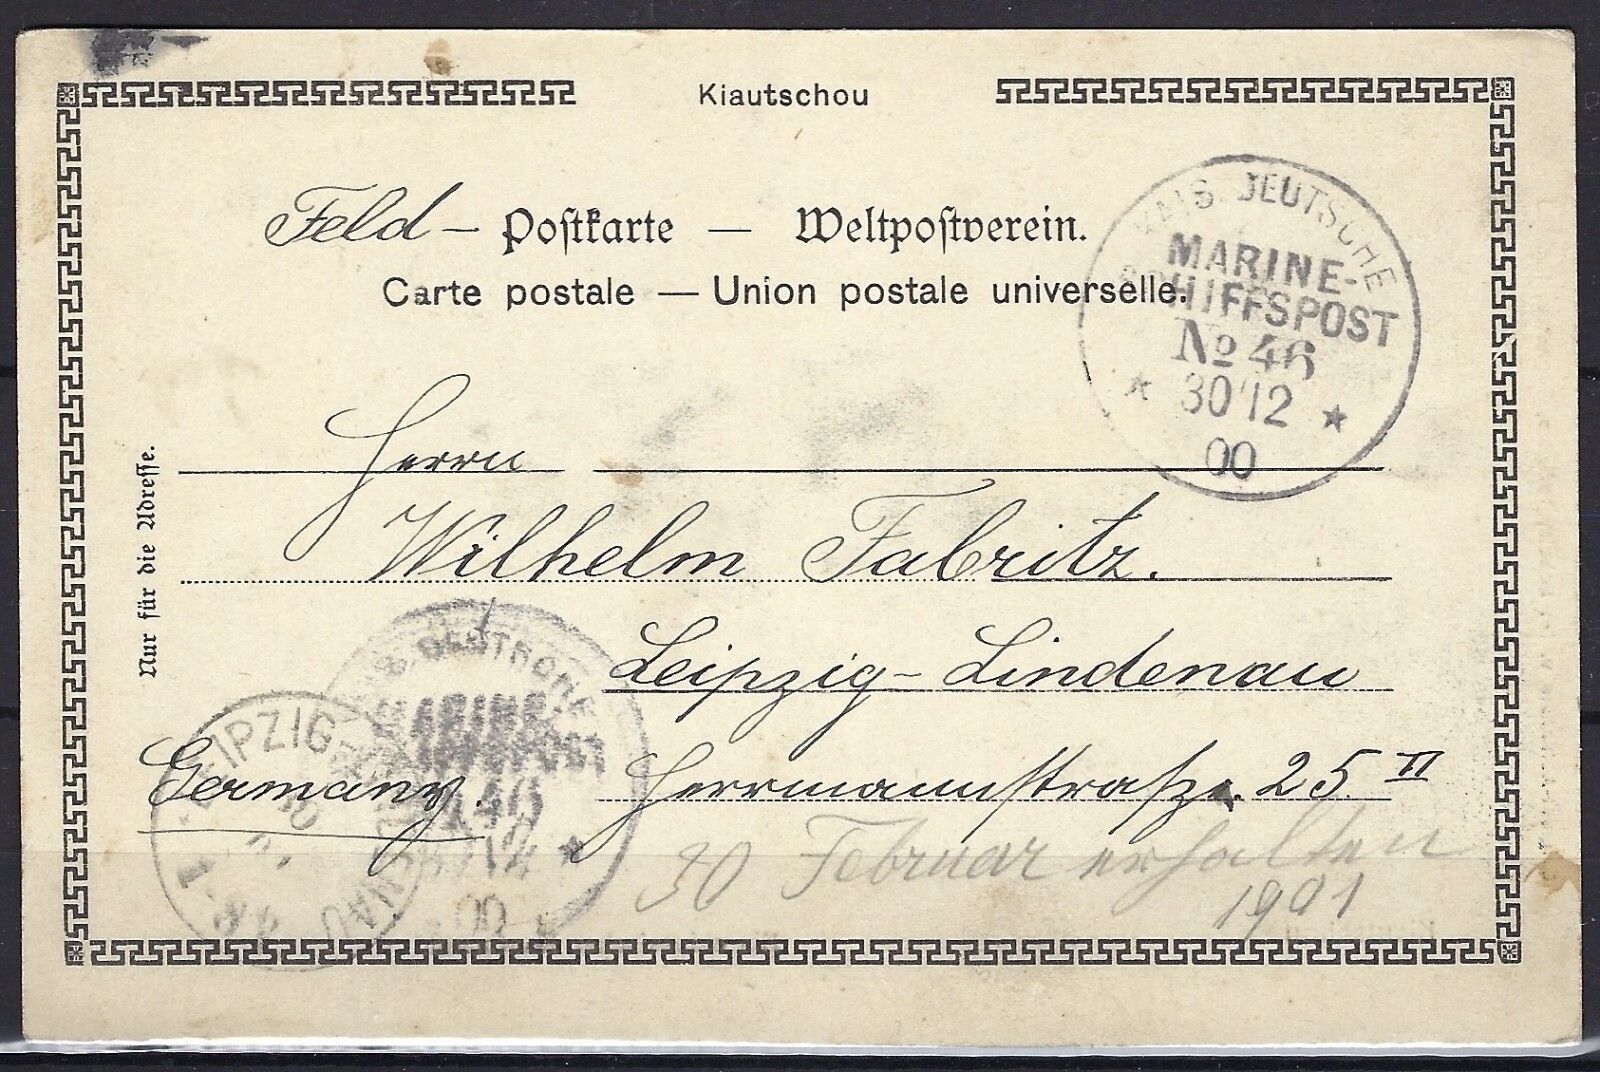 Kiautschou
Feld - Postkarte — Weltpostverein.
Carte postale — Union postale universelle.
KAIS. DEUTSCHE
MARINE-
SCHIFFSPOST
No 46
* 30/12 *
00
Nur für die Adresse.
Herrn
Wilhelm Fabritz.
Leipzig-Lindenau
Germany.
Herrmannstraße. 25 II
30 Februar erhalten
1901
LEIPZIG
DEUTSCHE
12
00